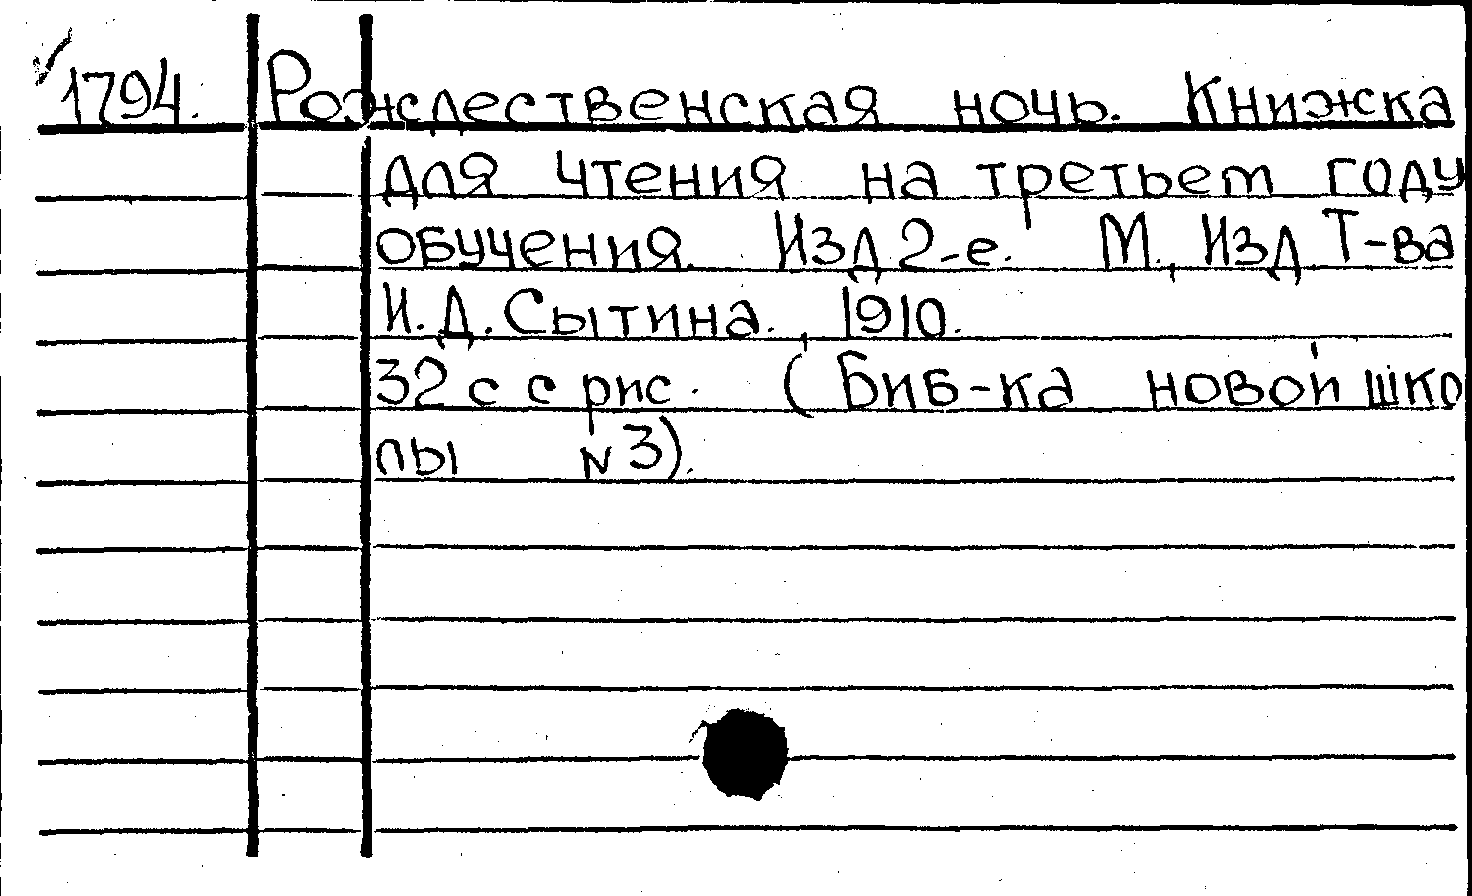 1794. Рождественская ночь. Книжка
для чтения на третьем году
обучения. Изд 2-е. М., Изд Т-ва
И.Д. Сытина., 1910.
32 с с рис. (Биб-ка новой шко
лы №3).